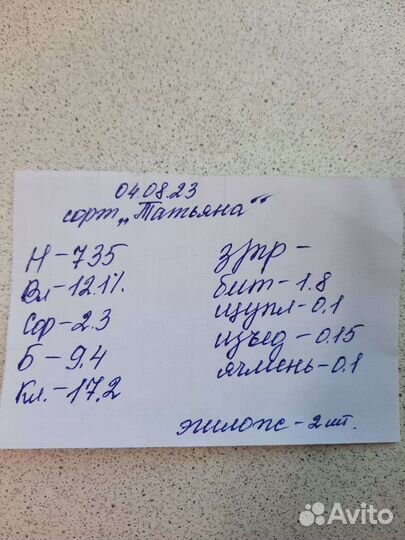 04.08.23
сорт „Татьяна“
Н-735
Вл-12.1%
Сф-2.3
Б-9.4
Кл.-17,2
з/пр -
бит-1.8
щупл-0.1
изъед-0.15
ячмень-0.1
эгилопс-2шт.
Avito